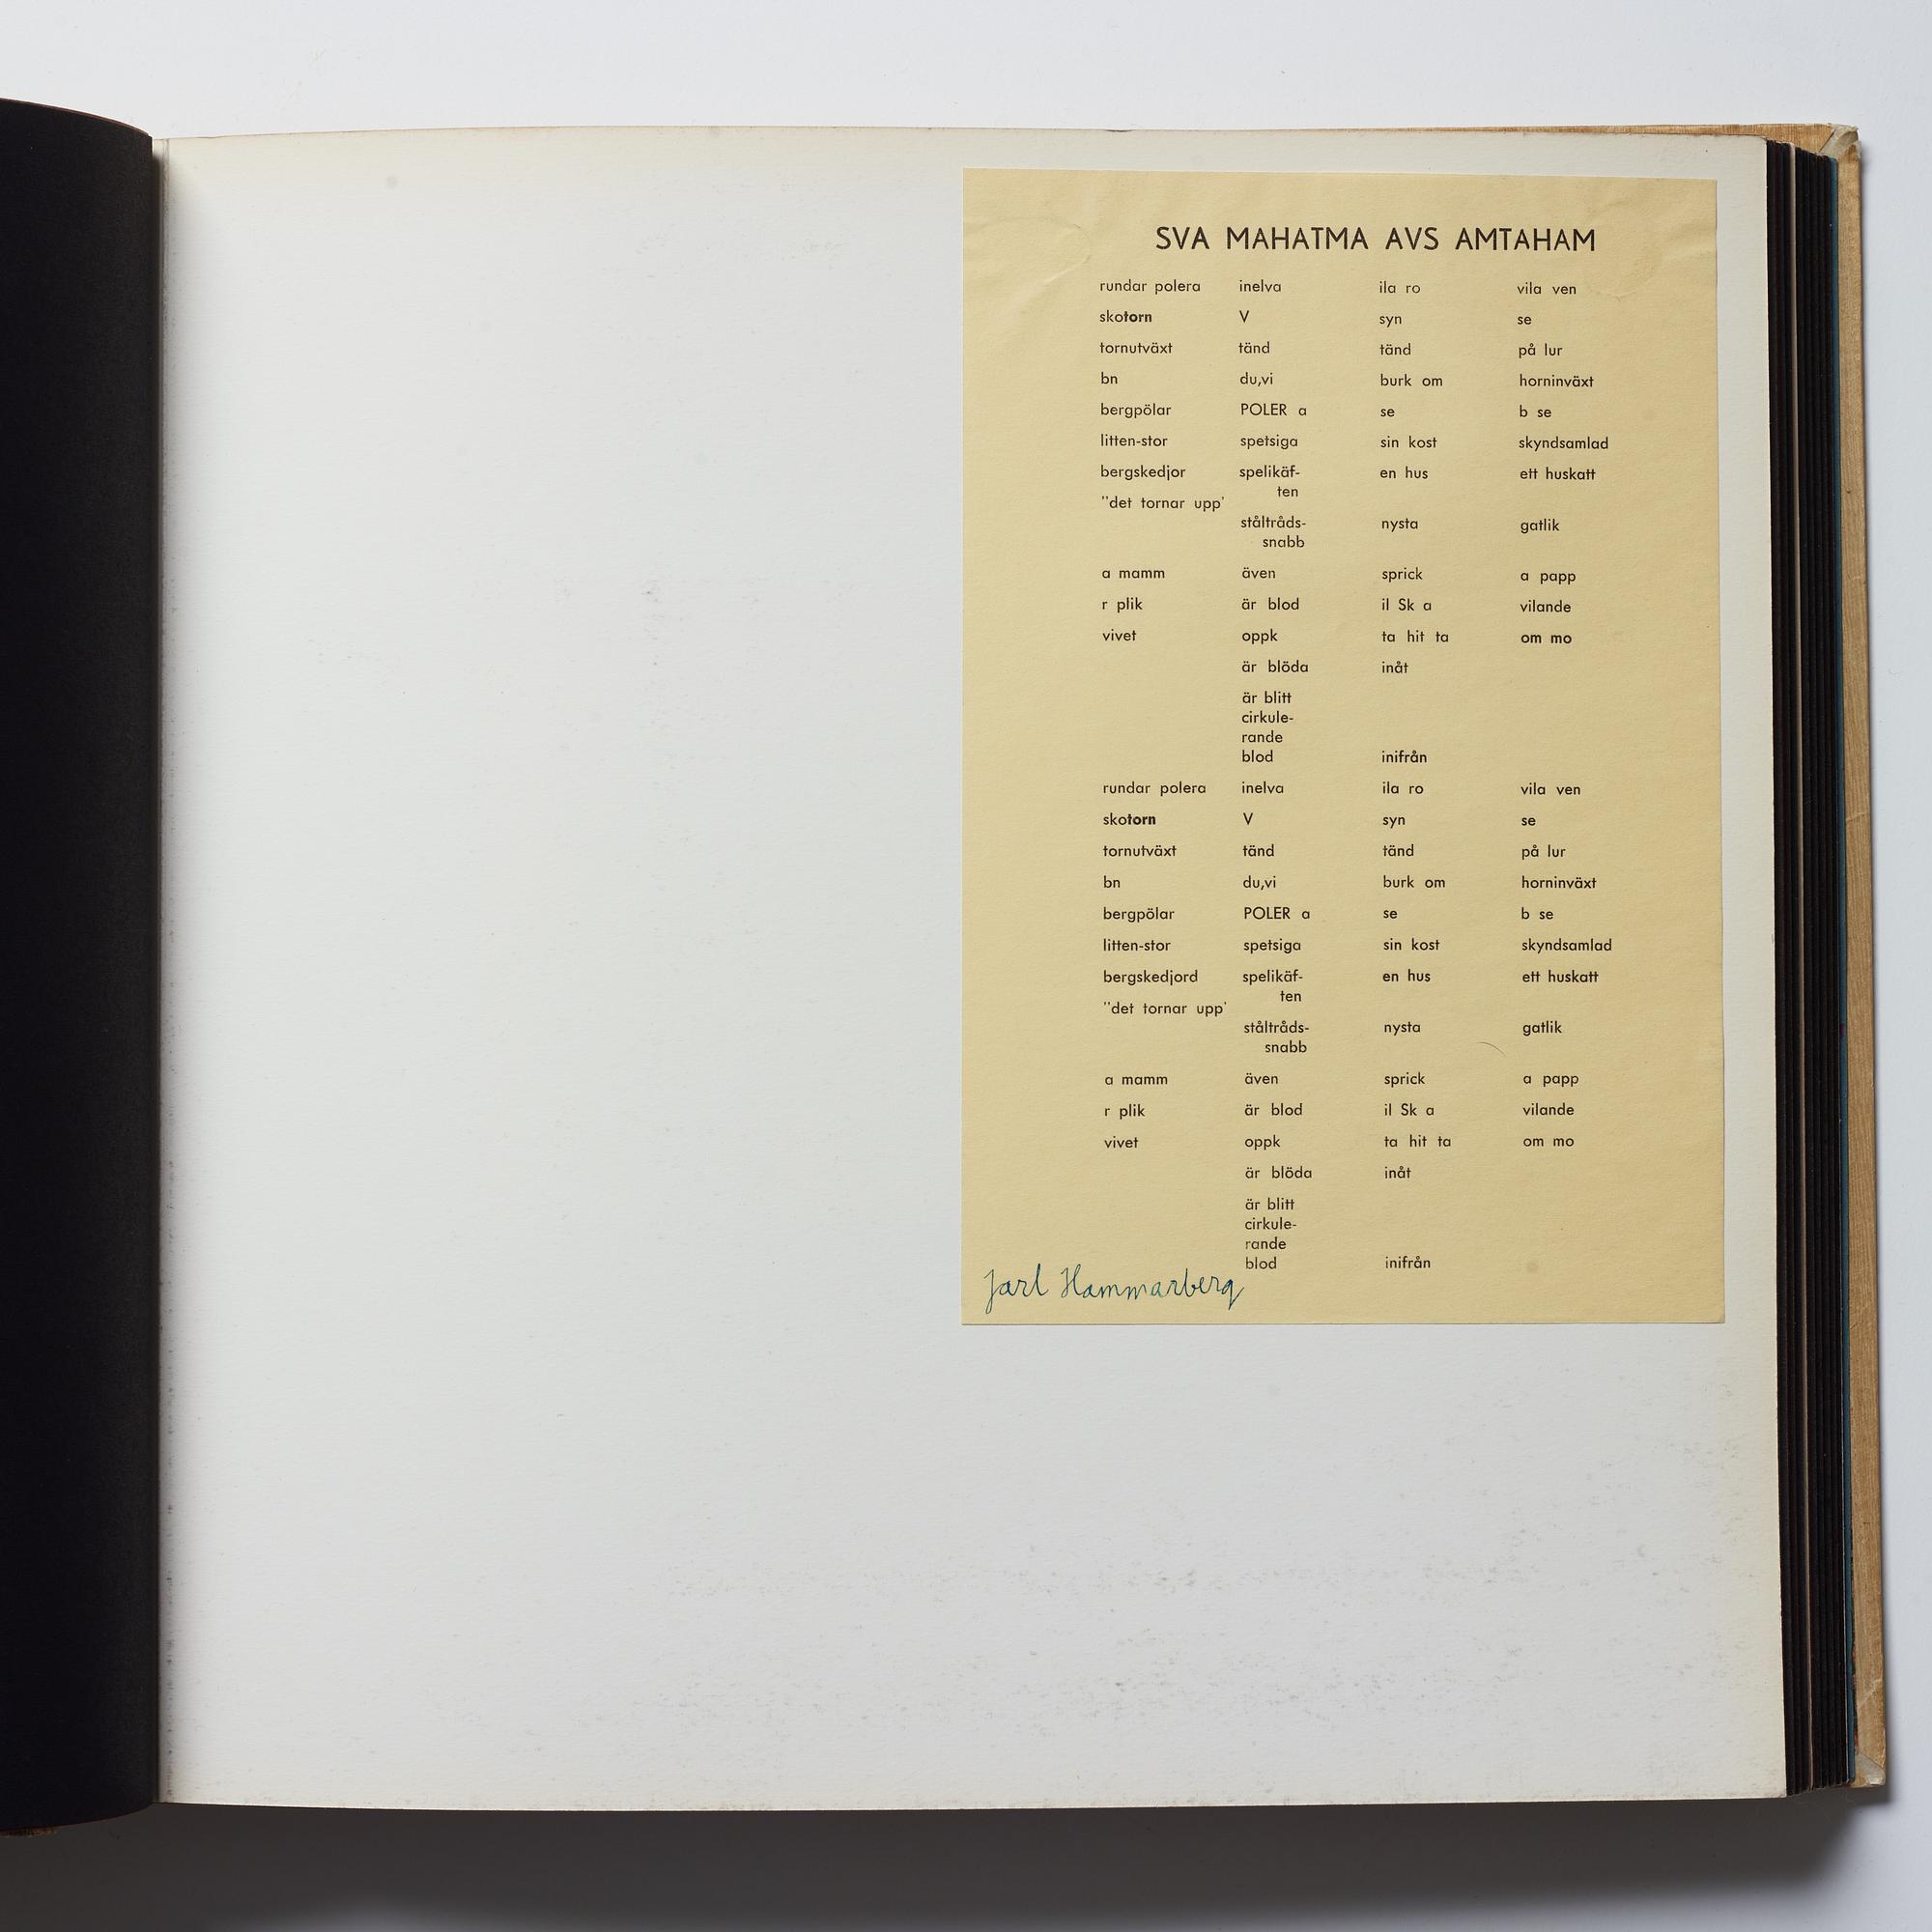 SVA MAHATMA AVS AMTAHAM
rundar polera inelva ila ro vila ven
skotorn V syn se
tornutväxt tänd tänd på lur
bn du,vi burk om horninväxt
bergpölar POLER a se b se
litten-stor spetsiga sin kost skyndsamlad
bergskedjor spelikäf- en hus ett huskatt
ten
"det tornar upp'
ståltråds- nysta gatlik
snabb
a mamm även sprick a papp
r plik är blod il Sk a vilande
vivet oppk ta hit ta om mo
är blöda inåt
är blitt
cirkule-
rande
blod inifrån
rundar polera inelva ila ro vila ven
skotorn V syn se
tornutväxt tänd tänd på lur
bn du,vi burk om horninväxt
bergpölar POLER a se b se
litten-stor spetsiga sin kost skyndsamlad
bergskedjord spelikäf- en hus ett huskatt
ten
"det tornar upp'
ståltråds- nysta gatlik
snabb
a mamm även sprick a papp
r plik är blod il Sk a vilande
vivet oppk ta hit ta om mo
är blöda inåt
är blitt
cirkule-
rande
blod inifrån
Jarl Hammarberg